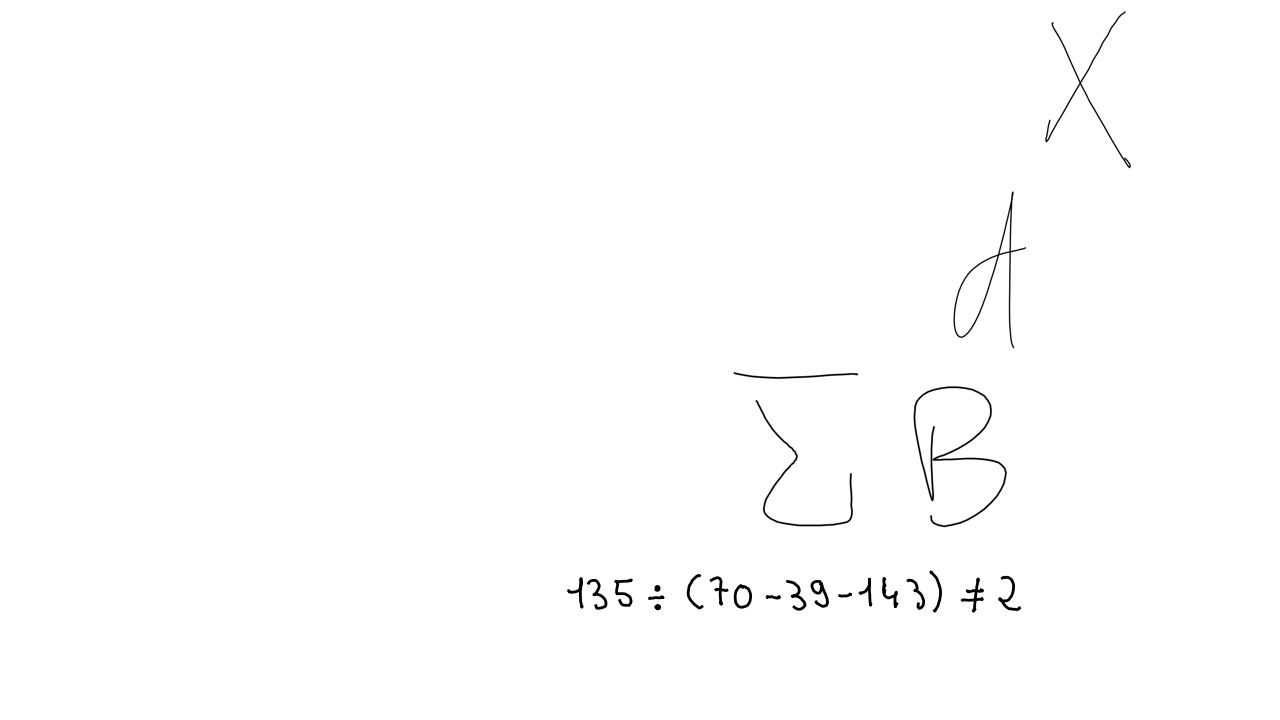 X
d
Σ B
135 ÷ (70 - 39 - 143) ≠ 2